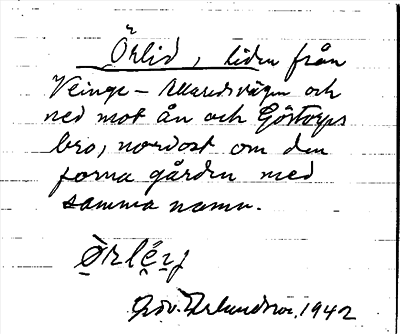 Örlid, liden från
Veinge - Alaredsvägen och
ned mot ån och Göstorps
bro, nordost om den
forna gården med
samma namn.
Erlandson, 1942